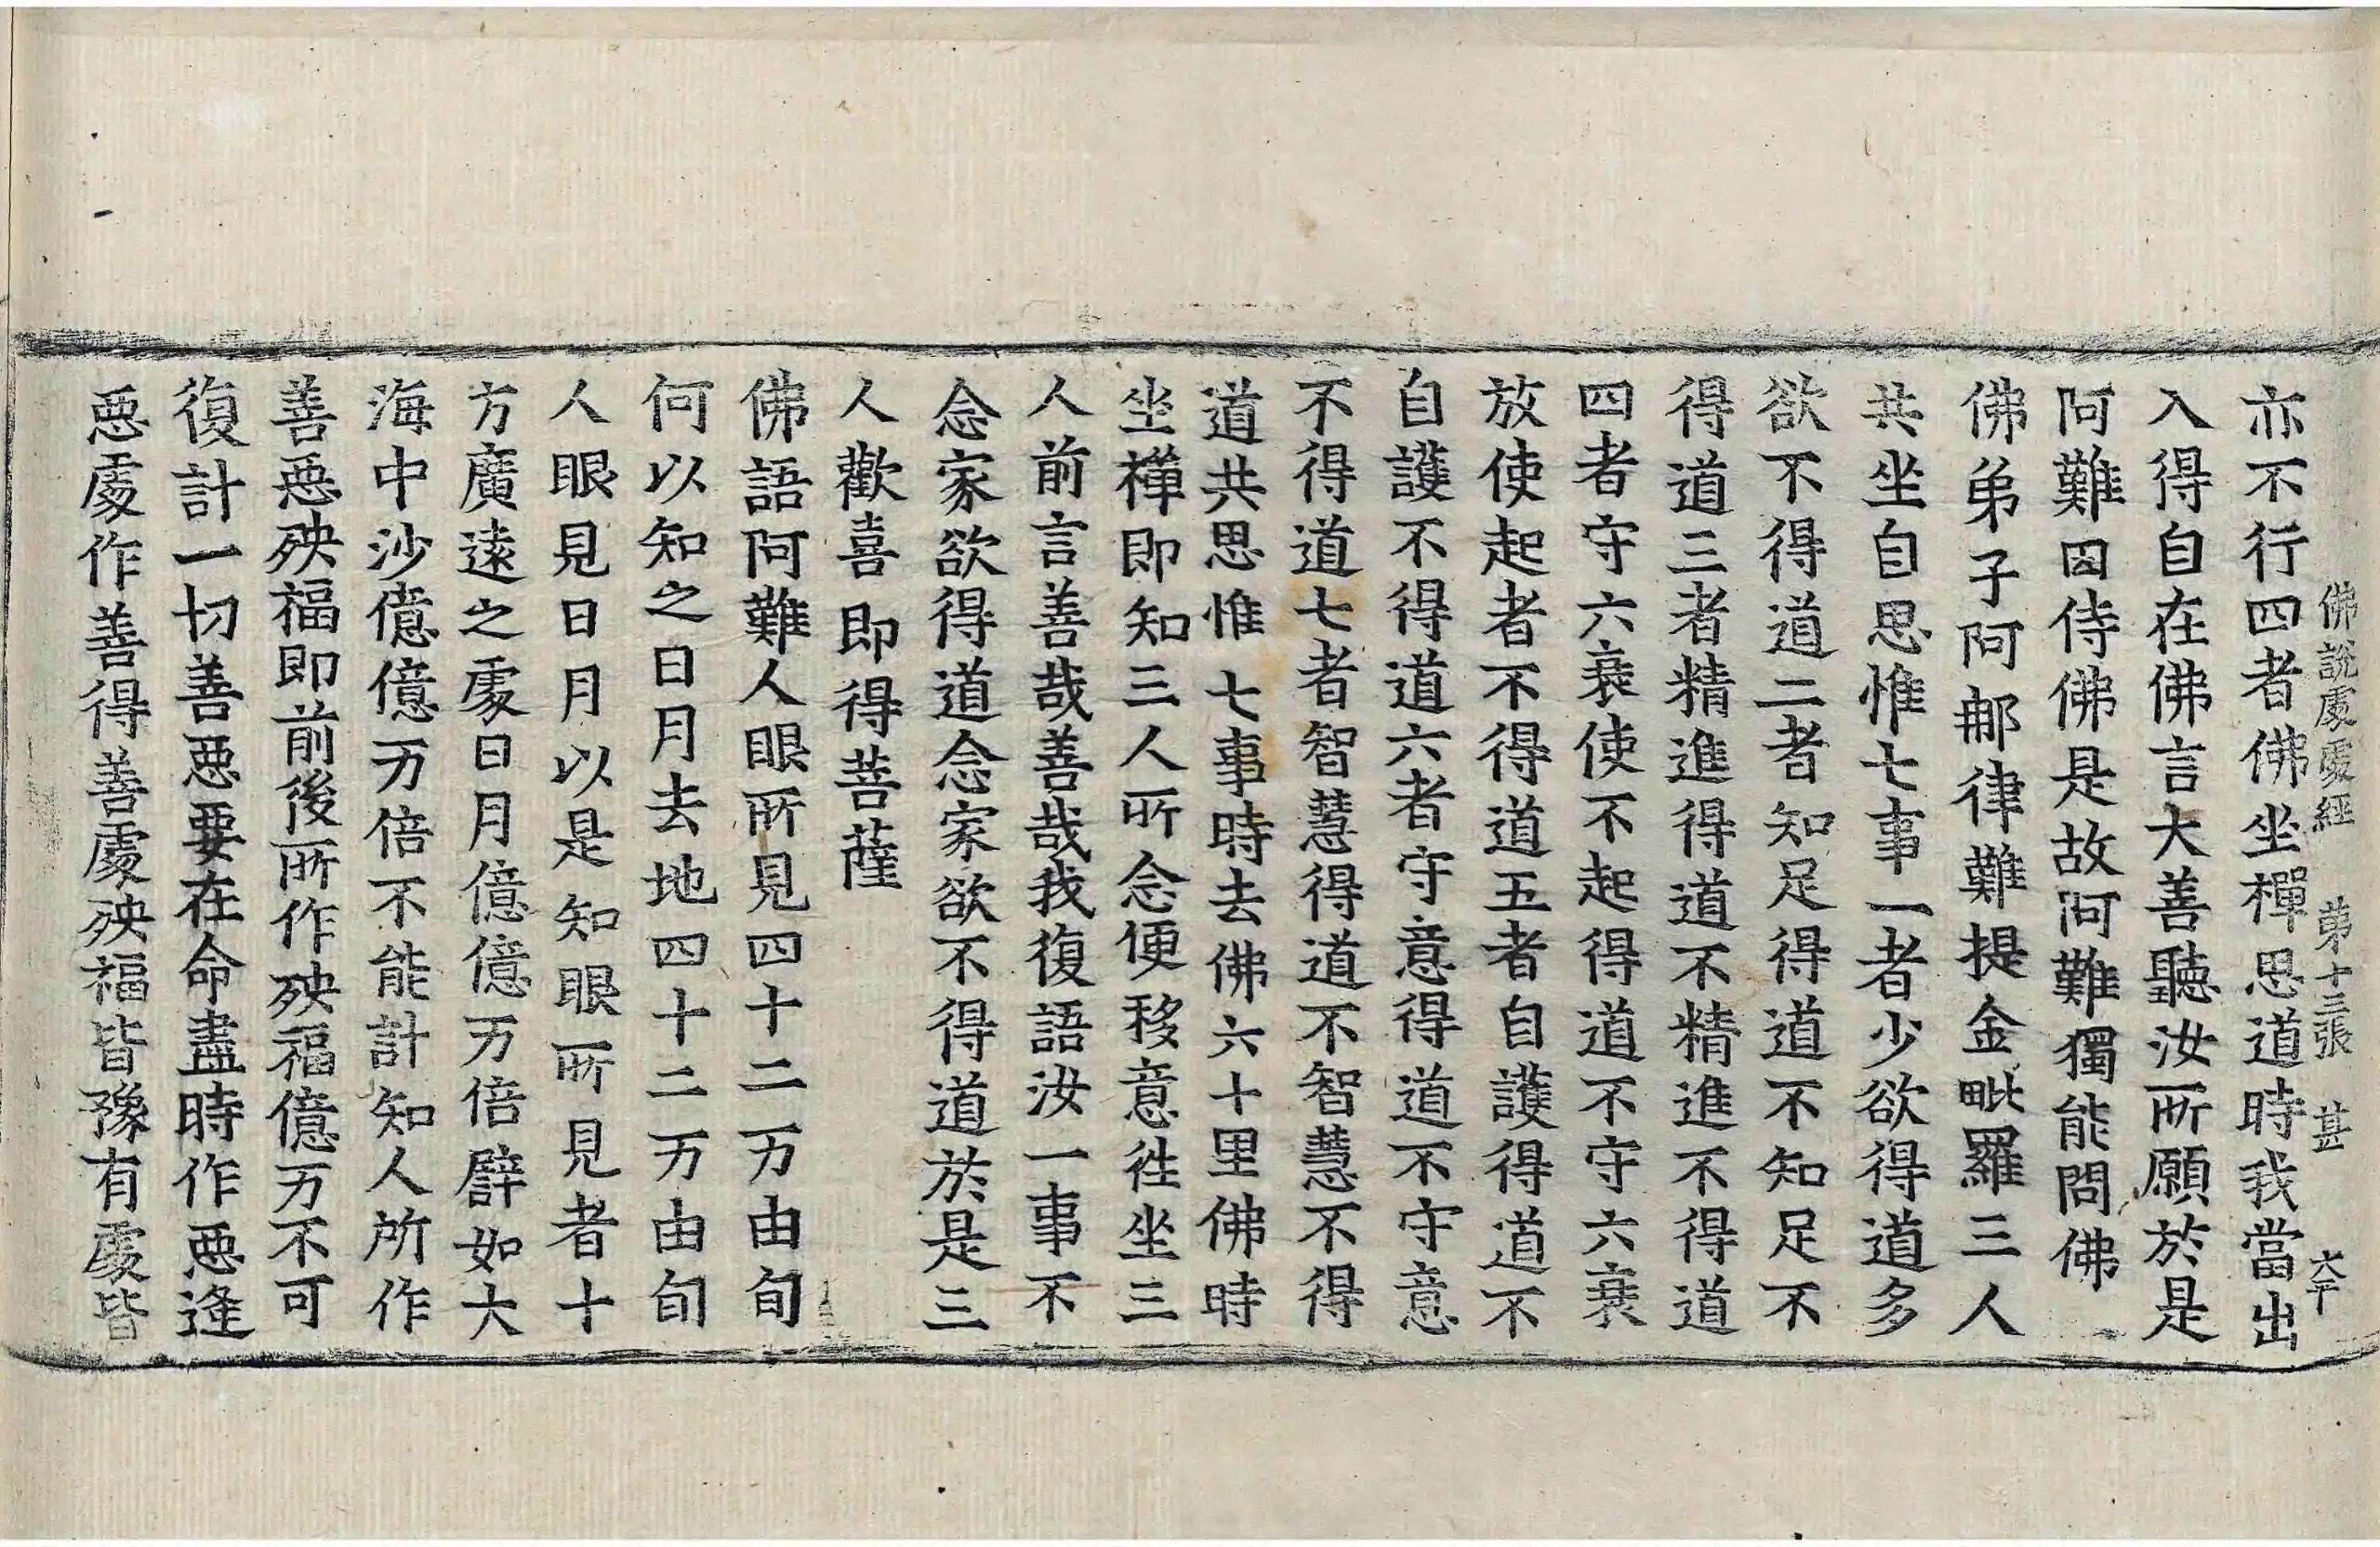 佛說處處經　第十三張　甚　大平
亦不行四者佛坐禪思道時我當出
入得自在佛言大善聽汝所願於是
阿難因侍佛是故阿難獨能問佛
佛弟子阿那律難提金毗羅三人
共坐自思惟七事一者少欲得道多
欲不得道二者知足得道不知足不
得道三者精進得道不精進不得道
四者守六衰使不起得道不守六衰
放使起者不得道五者自護得道不
自護不得道六者守意得道不守意
不得道七者智慧得道不智慧不得
道共思惟七事時去佛六十里佛時
坐禪即知三人所念便移意徃坐三
人前言善哉善哉我復語汝一事不
念家欲得道念家欲不得道於是三
人歡喜即得菩薩
佛語阿難人眼所見四十二万由旬
何以知之日月去地四十二万由旬
人眼見日月以是知眼所見者十
方廣遠之處日月億億万倍譬如大
海中沙億億万倍不能計知人所作
善惡殃福即前後所作殃福億万不可
復計一切善惡要在命盡時作惡逢
惡處作善得善處殃福皆豫有處皆